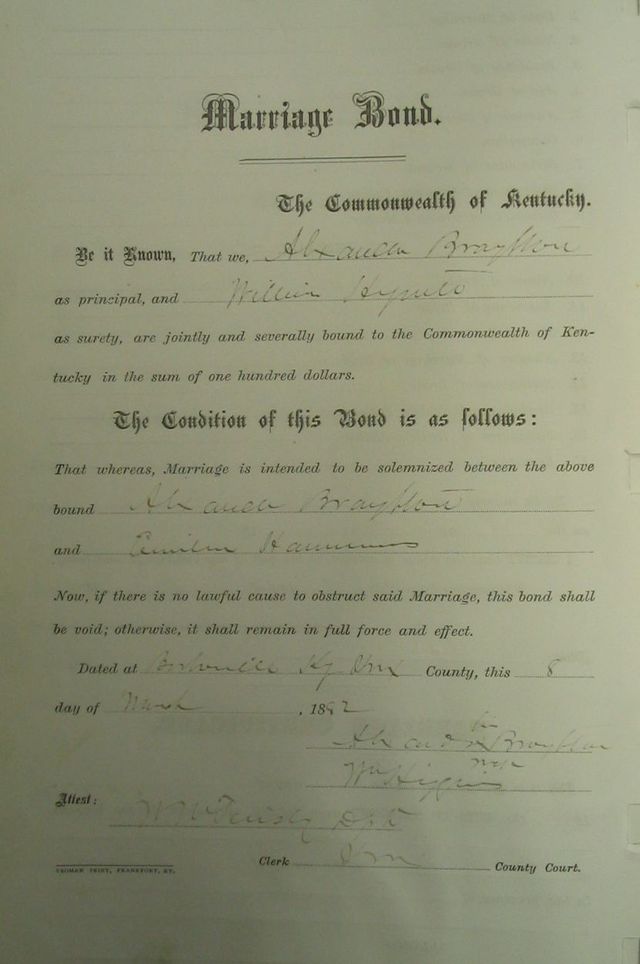 Marriage Bond.
The Commonwealth of Kentucky.
Be it Known, That we, Alexander Braytton
as principal, and William
as surety, are jointly and severally bound to the Commonwealth of Ken-
tucky in the sum of one hundred dollars.
The Condition of this Bond is as follows:
That whereas, Marriage is intended to be solemnized between the above
bound Alexander Braytton
and
Now, if there is no lawful cause to obstruct said Marriage, this bond shall
be void; otherwise, it shall remain in full force and effect.
Dated at Ky County, this 8
day of March, 1892
his
Alexander x Braytton
mark
Wm Higgins
Attest:
Clerk County Court.
YEOMAN PRINT, FRANKFORT, KY.